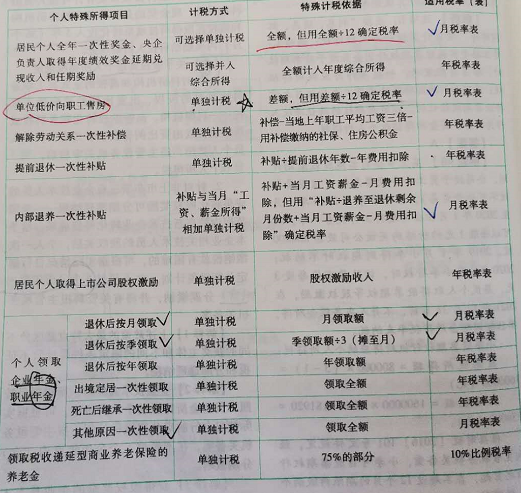 个人特殊所得项目 计税方式 特殊计税依据 适用税率（表）
居民个人全年一次性奖金、央企负责人取得年度绩效奖金延期兑现收入和任期奖励 可选择单独计税 全额，但用全额÷12 确定税率 月税率表
可选择并入综合所得 全额计入年度综合所得 年税率表
单位低价向职工售房 单独计税 差额，但用差额÷12 确定税率 月税率表
解除劳动关系一次性补偿 单独计税 补偿-当地上年职工平均工资三倍-用补偿缴纳的社保、住房公积金 年税率表
提前退休一次性补贴 单独计税 补贴÷提前退休年数-年费用扣除 年税率表
内部退养一次性补贴 补贴与当月“工资、薪金所得”相加单独计税 补贴+当月工资薪金-月费用扣除，但用“补贴÷退养至退休剩余月份数+当月工资薪金-月费用扣除”确定税率 月税率表
居民个人取得上市公司股权激励 单独计税 股权激励收入 年税率表
个人领取企业年金、职业年金
退休后按月领取 单独计税 月领取额 月税率表
退休后按季领取 单独计税 季领取额÷3（摊至月） 月税率表
退休后按年领取 单独计税 年领取额 年税率表
出境定居一次性领取 单独计税 领取全额 年税率表
死亡后继承一次性领取 单独计税 领取全额 年税率表
其他原因一次性领取 单独计税 领取全额 月税率表
领取税收递延型商业养老保险的养老金 单独计税 75%的部分 10%比例税率